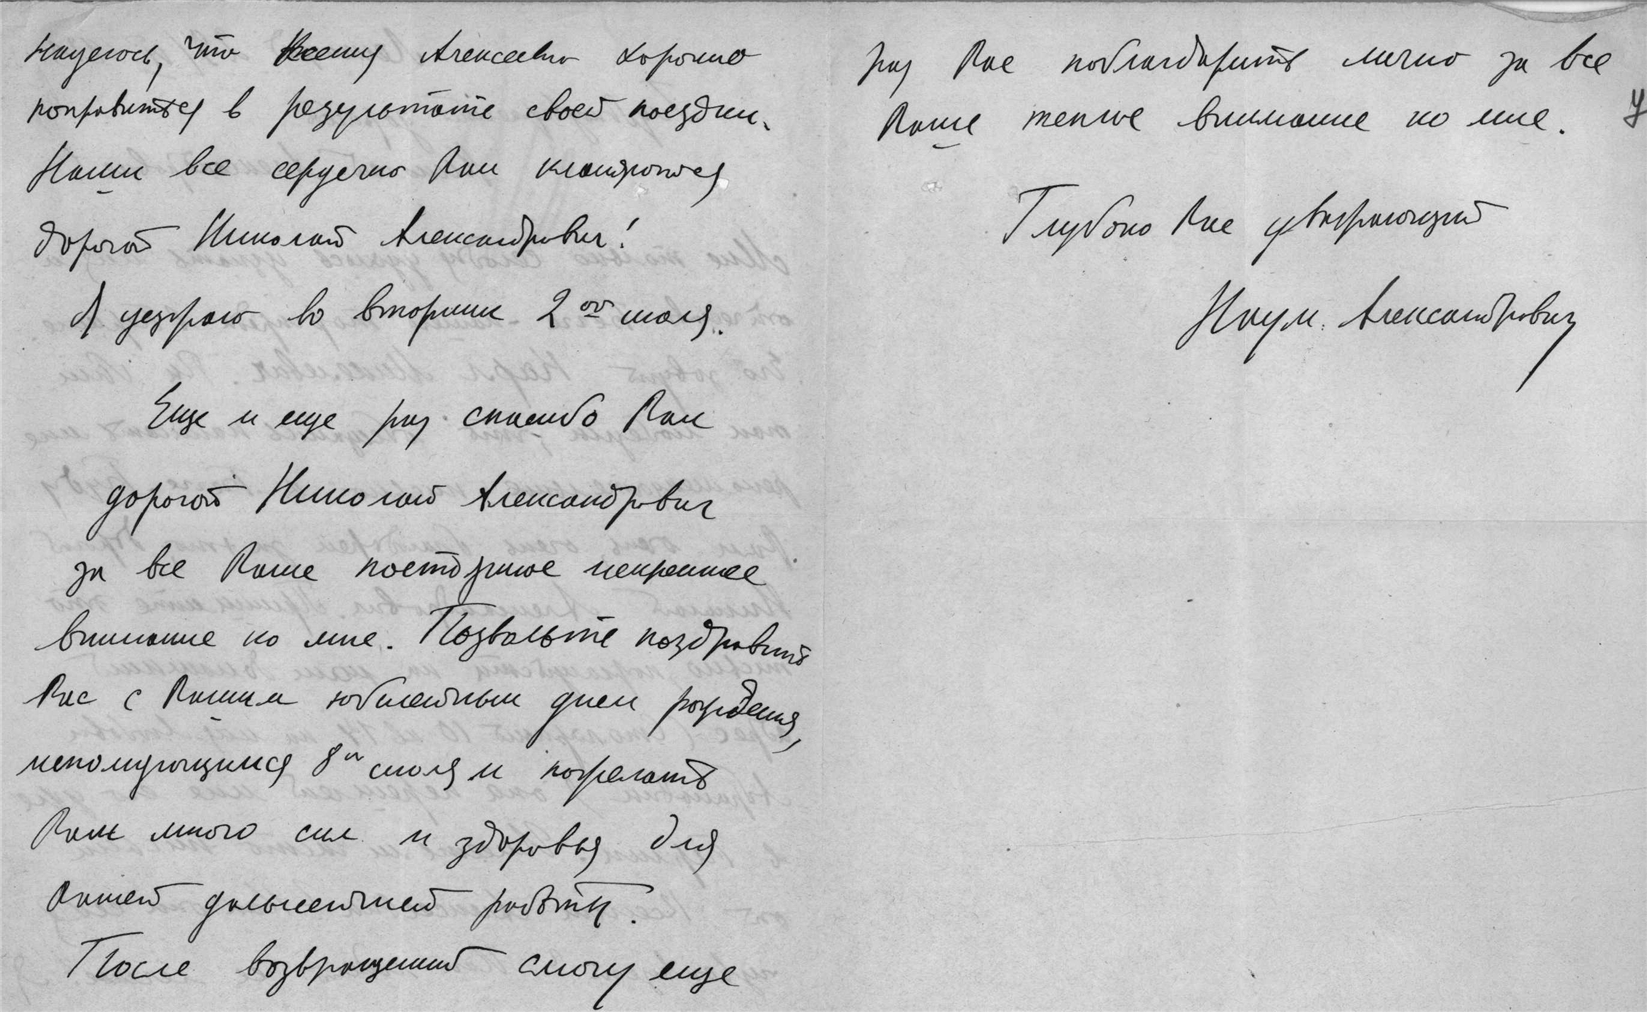 надеюсь, что Ксения Алексеевна хорошо
поправится в результате своей поездки.
Наши все сердечно Вам кланяются
дорогой Николай Александрович!
Я уезжаю во вторник 2ого июля.
Еще и еще раз спасибо Вам
дорогой Николай Александрович
за все Ваше постоянное искреннее
внимание ко мне. Позвольте поздравить
Вас с Вашим юбилейным днем рождения,
исполняющимся 8го июля и пожелать
Вам много сил и здоровья для
Вашей дальнейшей работы.
После возвращения смогу еще
раз Вас поблагодарить лично за все
Ваше теплое внимание ко мне.
Глубоко Вас уважающий
Наум Александрович